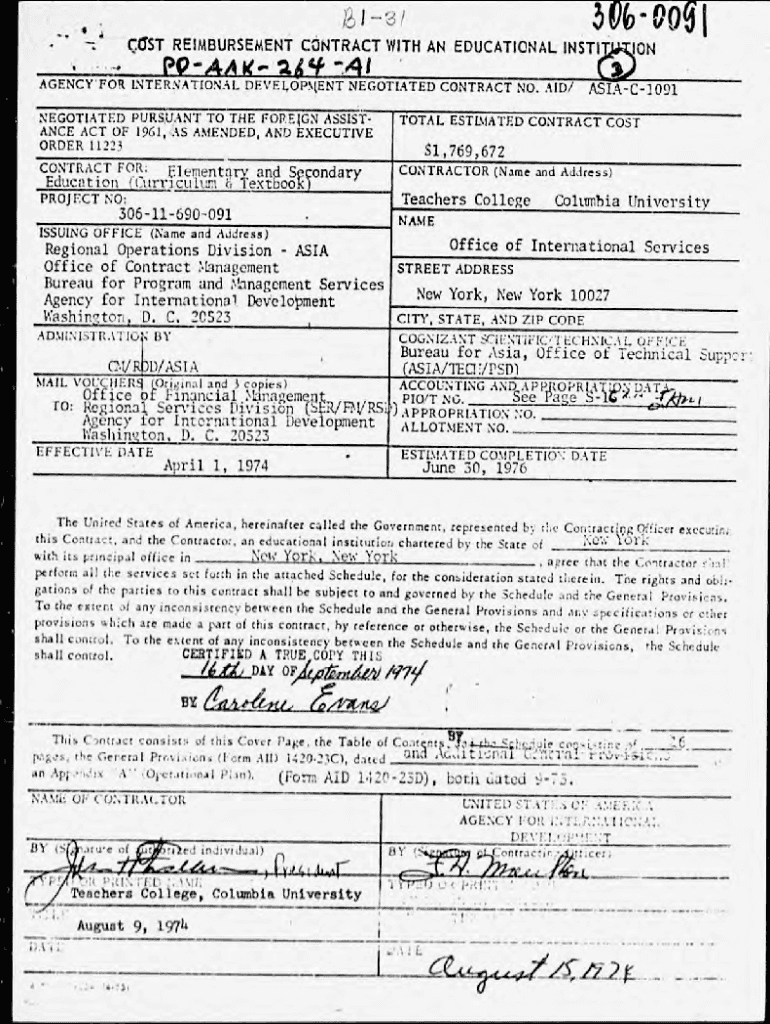 B1-31
306-0091
COST REIMBURSEMENT CONTRACT WITH AN EDUCATIONAL INSTITUTION
PD-AAK-264-A1
2
AGENCY FOR INTERNATIONAL DEVELOPMENT NEGOTIATED CONTRACT NO. AID/ ASIA-C-1091
NEGOTIATED PURSUANT TO THE FOREIGN ASSIST-
ANCE ACT OF 1961, AS AMENDED, AND EXECUTIVE
ORDER 11223
TOTAL ESTIMATED CONTRACT COST
$1,769,672
CONTRACT FOR: Elementary and Secondary
Education (Curriculum & Textbook)
CONTRACTOR (Name and Address)
Teachers College Columbia University
PROJECT NO:
306-11-690-091
NAME
Office of International Services
ISSUING OFFICE (Name and Address)
Regional Operations Division - ASIA
Office of Contract Management
Bureau for Program and Management Services
Agency for International Development
Washington, D. C. 20523
STREET ADDRESS
New York, New York 10027
CITY, STATE, AND ZIP CODE
ADMINISTRATION BY
CM/ROD/ASIA
COGNIZANT SCIENTIFIC/TECHNICAL OFFICE
Bureau for Asia, Office of Technical Support
(ASIA/TECH/PSD)
MAIL VOUCHERS (Original and 3 copies)
TO: Office of Financial Management
Regional Services Division (SER/FM/RSD)
Agency for International Development
Washington, D. C. 20523
ACCOUNTING AND APPROPRIATION DATA
PIO/T NO. See Page S-16
APPROPRIATION NO.
ALLOTMENT NO.
EFFECTIVE DATE
April 1, 1974
ESTIMATED COMPLETION DATE
June 30, 1976
The United States of America, hereinafter called the Government, represented by the Contracting Officer executing
this Contract, and the Contractor, an educational institution chartered by the State of New York
with its principal office in New York, New York, agree that the Contractor shall
perform all the services set forth in the attached Schedule, for the consideration stated therein. The rights and obli-
gations of the parties to this contract shall be subject to and governed by the Schedule and the General Provisions.
To the extent of any inconsistency between the Schedule and the General Provisions and any specifications or other
provisions which are made a part of this contract, by reference or otherwise, the Schedule or the General Provisions
shall control. To the extent of any inconsistency between the Schedule and the General Provisions, the Schedule
shall control.
CERTIFIED A TRUE COPY THIS
16th DAY OF September 1974
BY Carolene Evans
This Contract consists of this Cover Page, the Table of Contents, the Schedule consisting of 16
pages, the General Provisions (Form AID 1420-23C), dated and Additional General Provisions
an Appendix "A" (Operational Plan). (Form AID 1420-23D), both dated 9-73.
NAME OF CONTRACTOR
UNITED STATES OF AMERICA
AGENCY FOR INTERNATIONAL
DEVELOPMENT
BY (Signature of authorized individual)
, President
BY (Signature of Contracting Officer)
TYPED OR PRINTED NAME
Teachers College, Columbia University
TYPED OR PRINT
TITLE
August 9, 1974
DATE
DATE
August 15, 1974